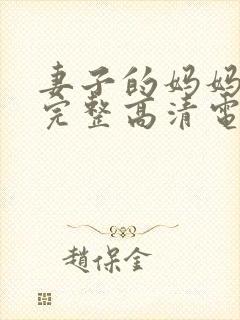 妻子的妈妈
完整高清電
趙保金